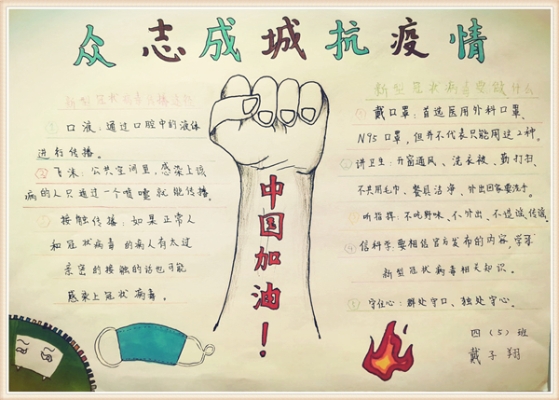 众志成城抗疫情
新型冠状病毒传播途径
① 口液：通过口腔中的液体
进行传播。
② 飞沫：公共空间里，感染上该
病的人只通过一个喷嚏就能传播。
③ 接触传播：如果正常人
和冠状病毒的病人有太过
亲密的接触的话也可能
感染上冠状病毒。
中国加油！
新型冠状病毒要做什么
① 戴口罩：首选医用外科口罩、
N95口罩，但并不代表只能用这2种。
② 讲卫生：开窗通风、洗衣被、勤打扫、
不共用毛巾、餐具洁净、外出回家要洗手。
③ 听指挥：不吃野味、不外出、不造谣传谣。
④ 信科学：要相信官方发布的内容，学习
新型冠状病毒相关知识。
⑤ 守住心：群处守口、独处守心。
四（5）班
戴子翔